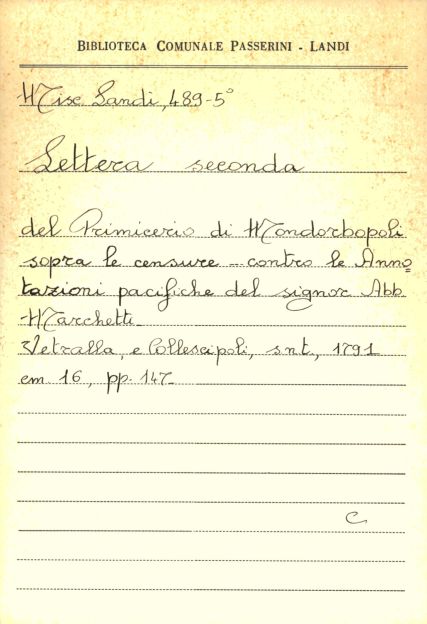 BIBLIOTECA COMUNALE PASSERINI - LANDI
Misc Landi, 489-5°
Lettera seconda
del Primicerio di Mondorbopoli
sopra le censure - contro le Anno
tazioni pacifiche del signor Abb.
Marchetti -
Vetralla, e Collescipoli, s.n.t., 1791
cm 16, pp. 147 -
C